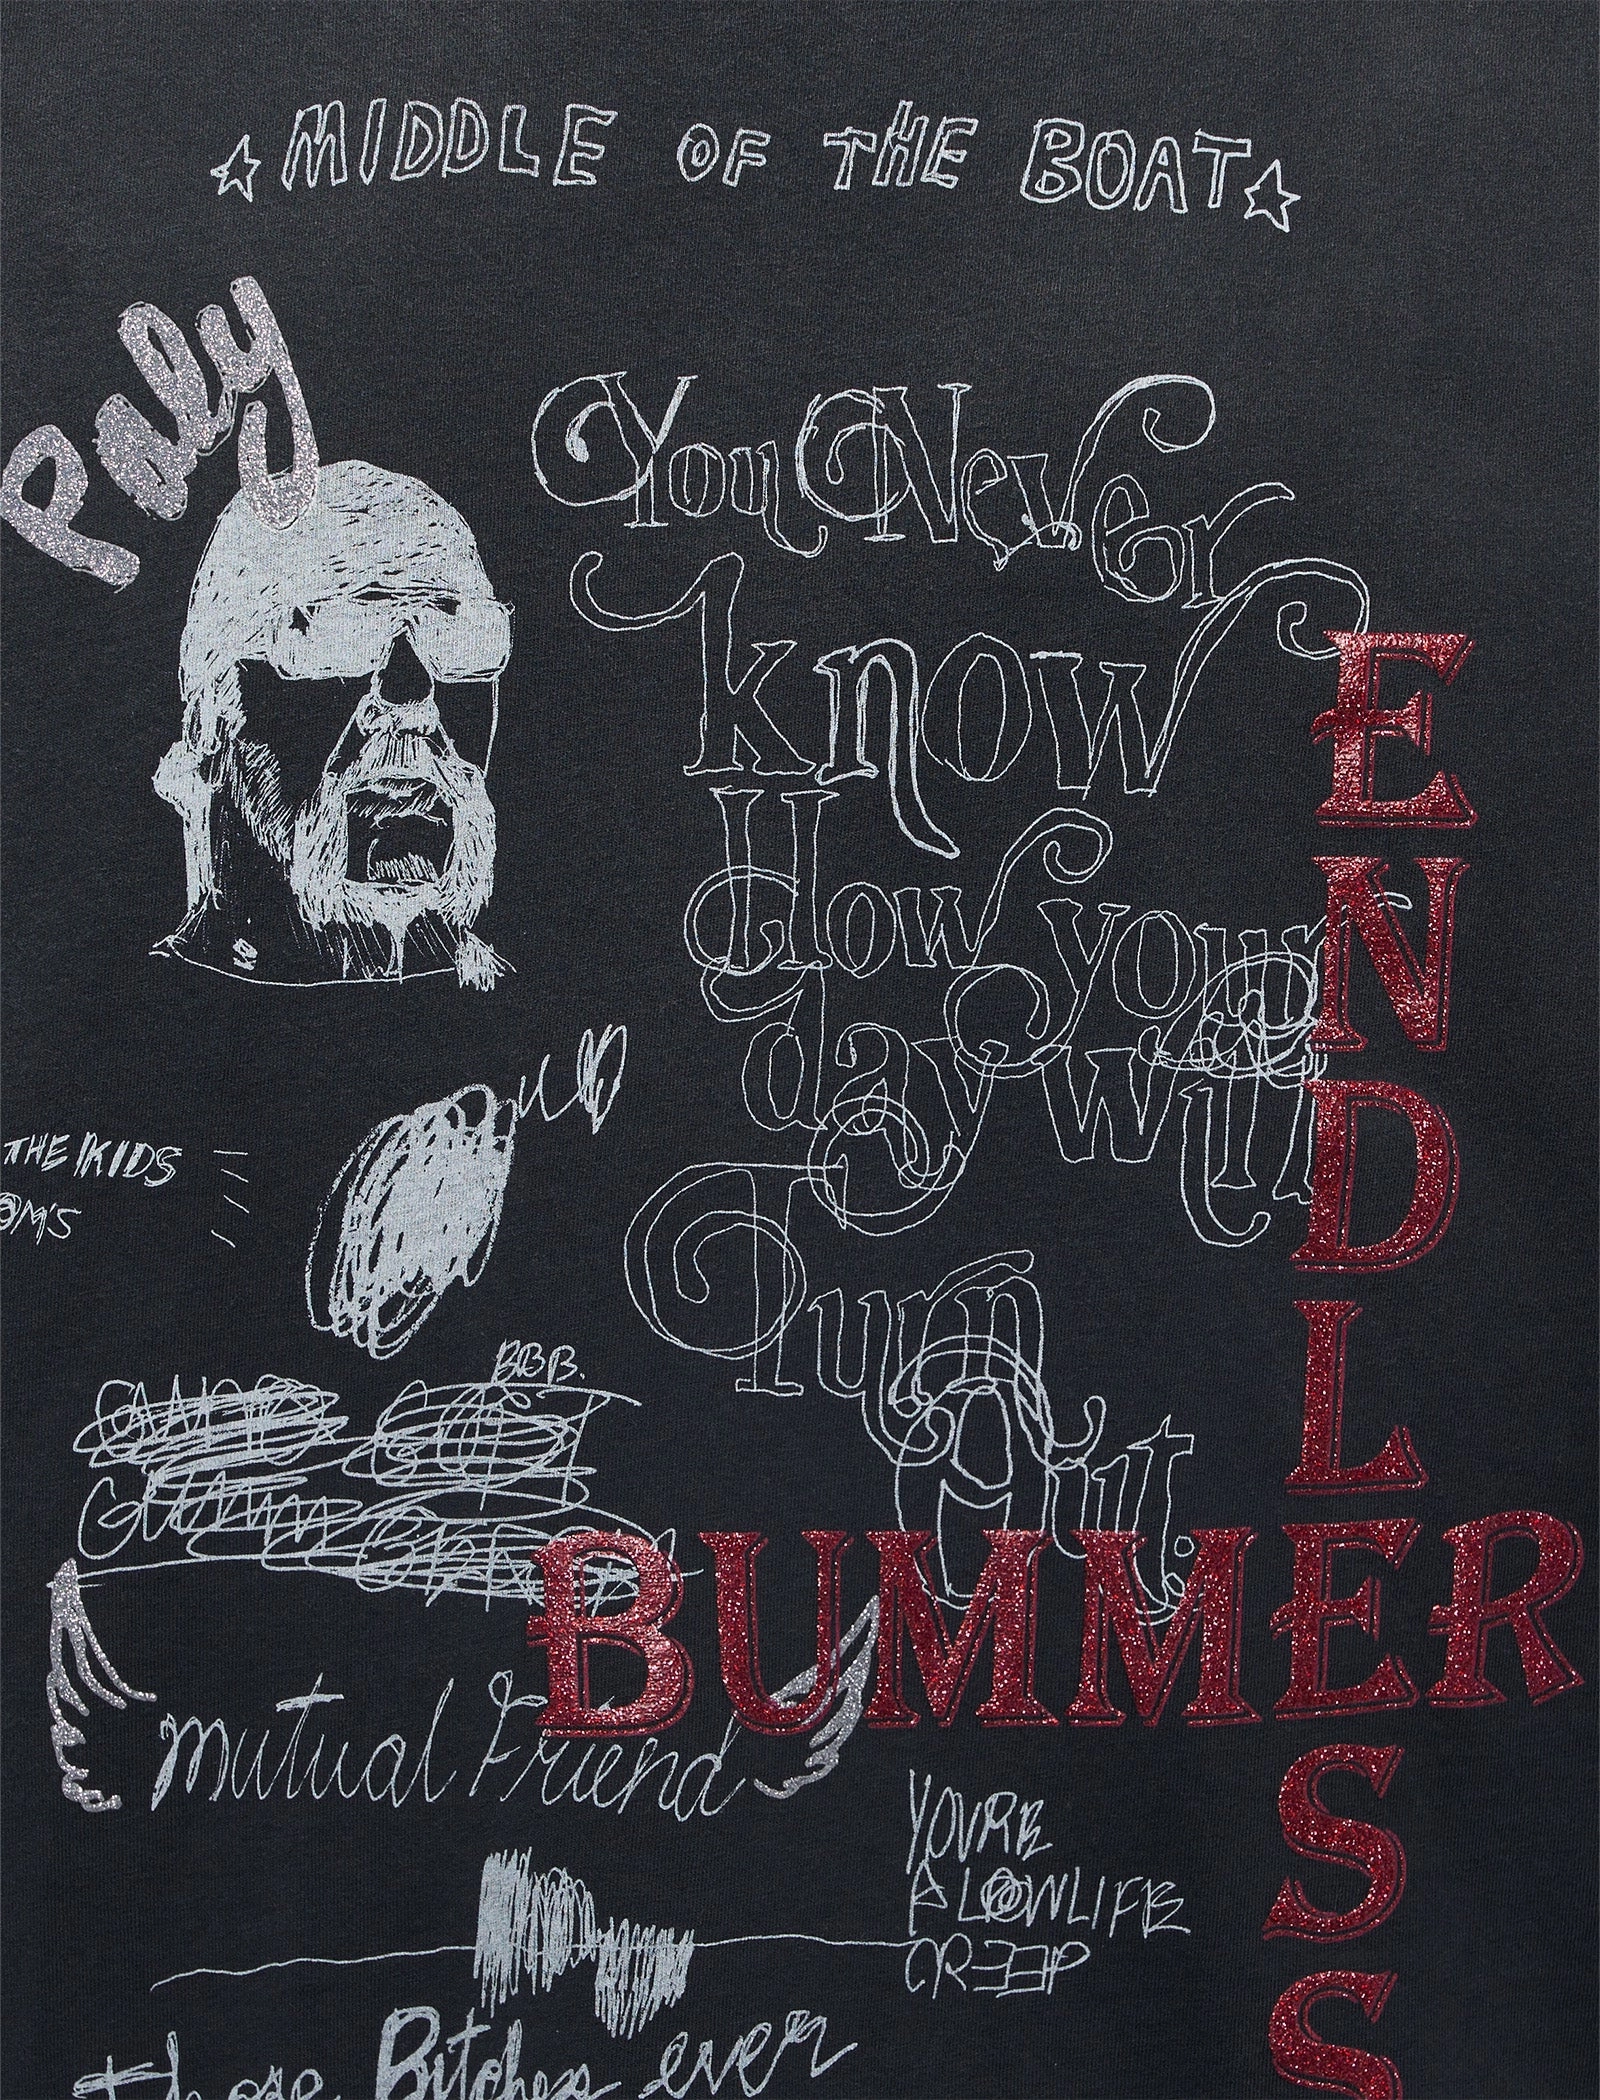 MIDDLE OF THE BOAT
Paly
You Never
know
How your
day will
Turn
Out.
ENDLESS
THE KIDS
OM'S
BBB.
BUMMER
Mutual Friend
YOU'RE
A LOWLIFE
CREEP
those Bitches ever